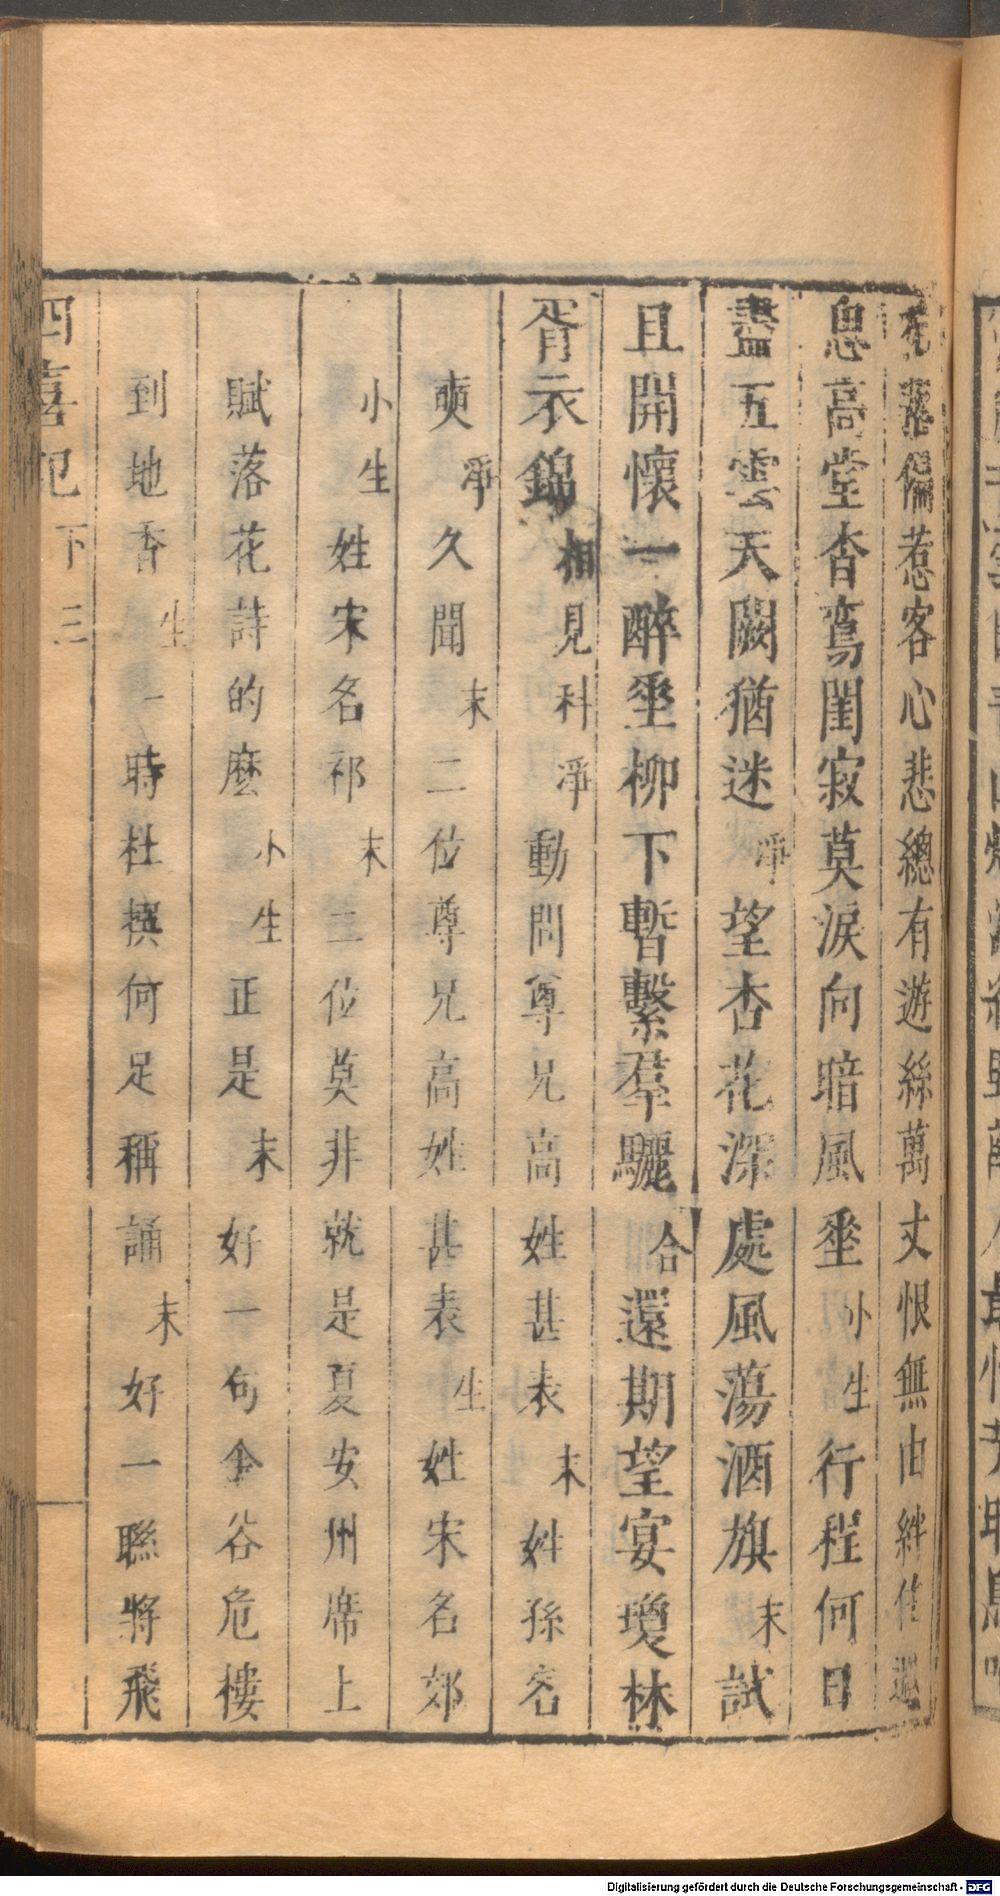 花落偏惹客心悲總有遊絲萬丈恨無由絆住
息高堂杳鴛閨寂莫淚向暗風垂小生行程何日
盡五雲天闕猶迷淨望杏花深處風蕩酒旗末試
且開懷一醉垂柳下暫繫羣驪合還期望宴瓊林
胥衣錦相見科淨動問尊兄高姓甚表末姓孫名
奭淨久聞末二位尊兄高姓甚表生姓宋名郊
小生姓宋名祁末二位莫非就是夏安州席上
賦落花詩的麼小生正是末好一句金谷危樓
到地香生一時杜撰何足稱誦末好一聯將飛
四喜記下三
Digitalisierung gefördert durch die Deutsche Forschungsgemeinschaft - DFG